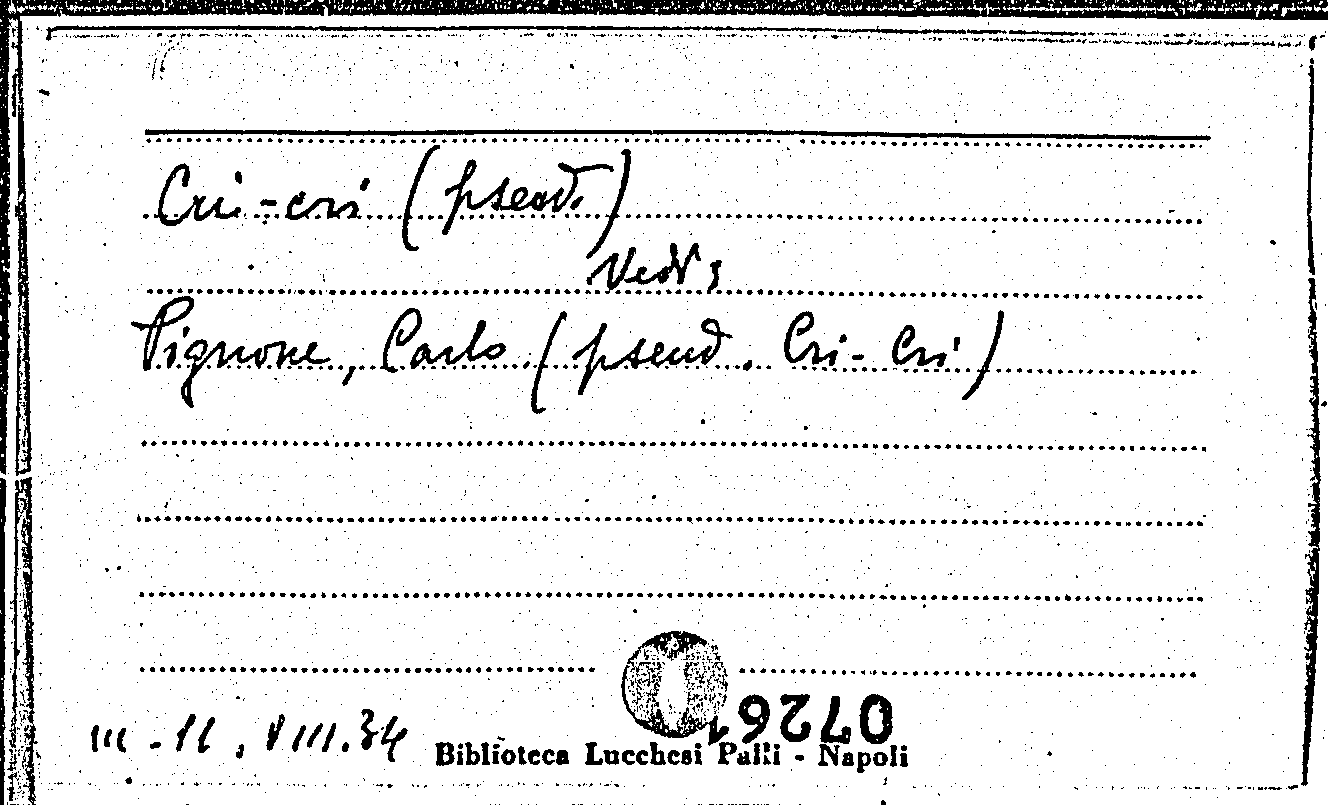 Cri-cri (pseud.)
Vedi:
Pignone, Carlo (pseud. Cri-Cri)
III-11, VIII.34
0726
Biblioteca Lucchesi Palli - Napoli